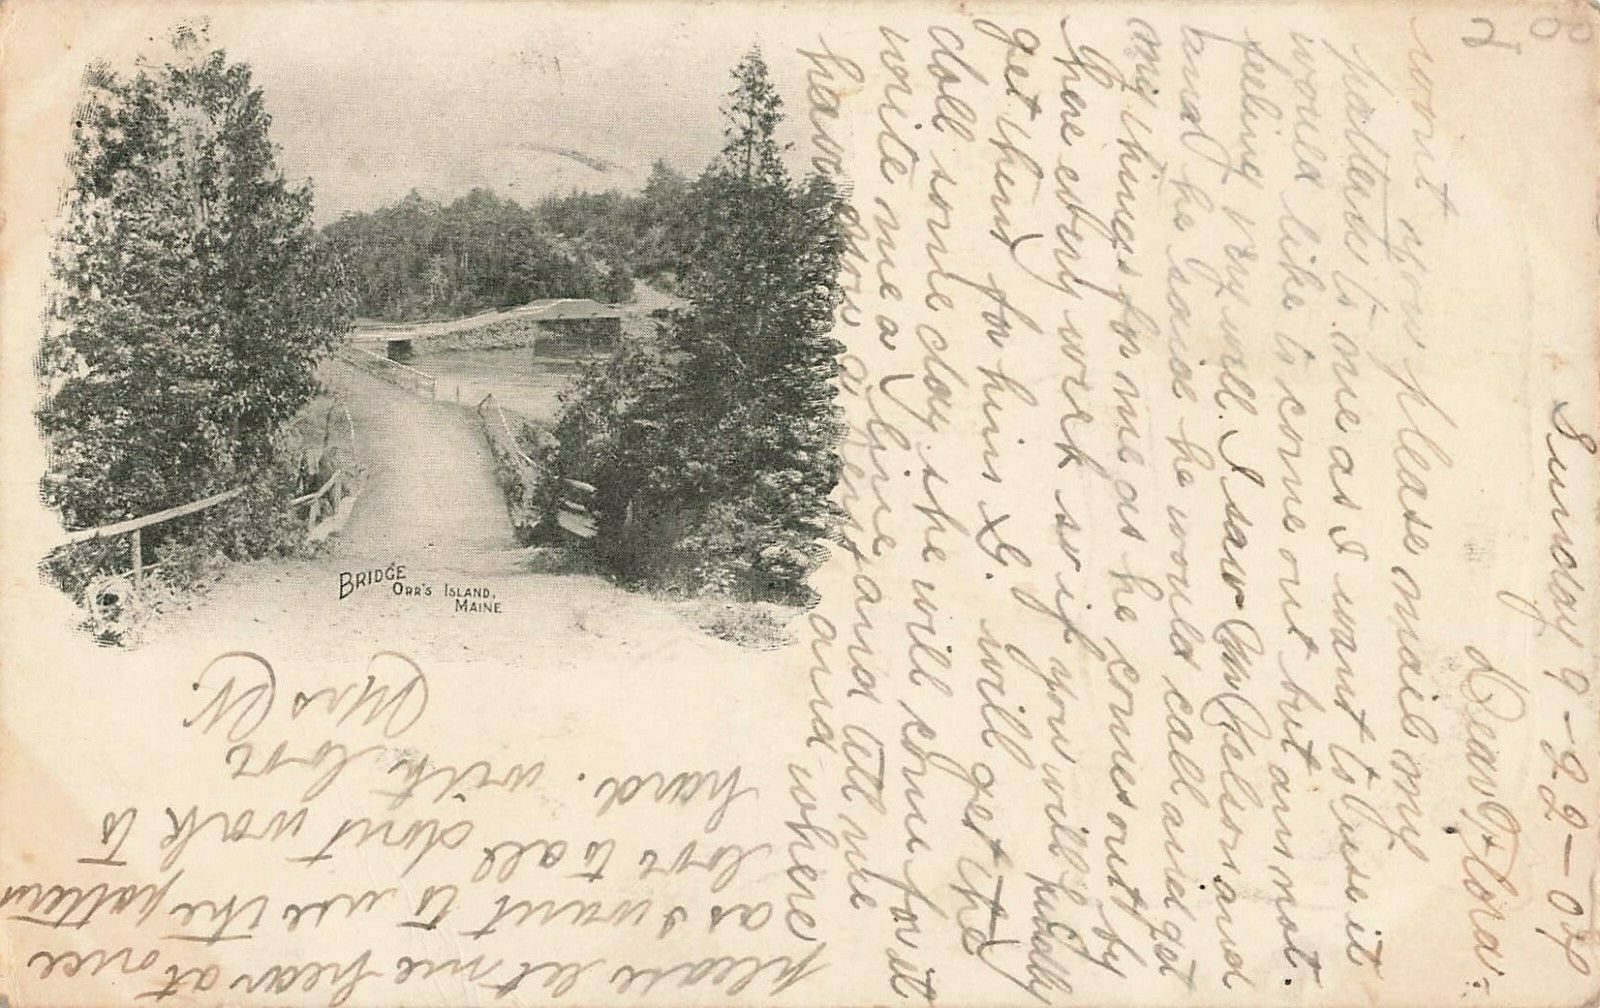 BRIDGE
ORR'S ISLAND,
MAINE
Sunday 9-22-04
Dear Flora:
wont you please mail my
patterns to me as I want to use it
would like to come out but am not
feeling very well. I saw Mr Nelson and
and he said he would call and get
my things for me as he comes out by
here every week so if you will kindly
get them for him G. will get the
doll some day she will come for it
write me a line and tell me
how are and where
please let me hear at once
as I want to use the pattern
love to all dont work to
hard. with love
Mrs W.